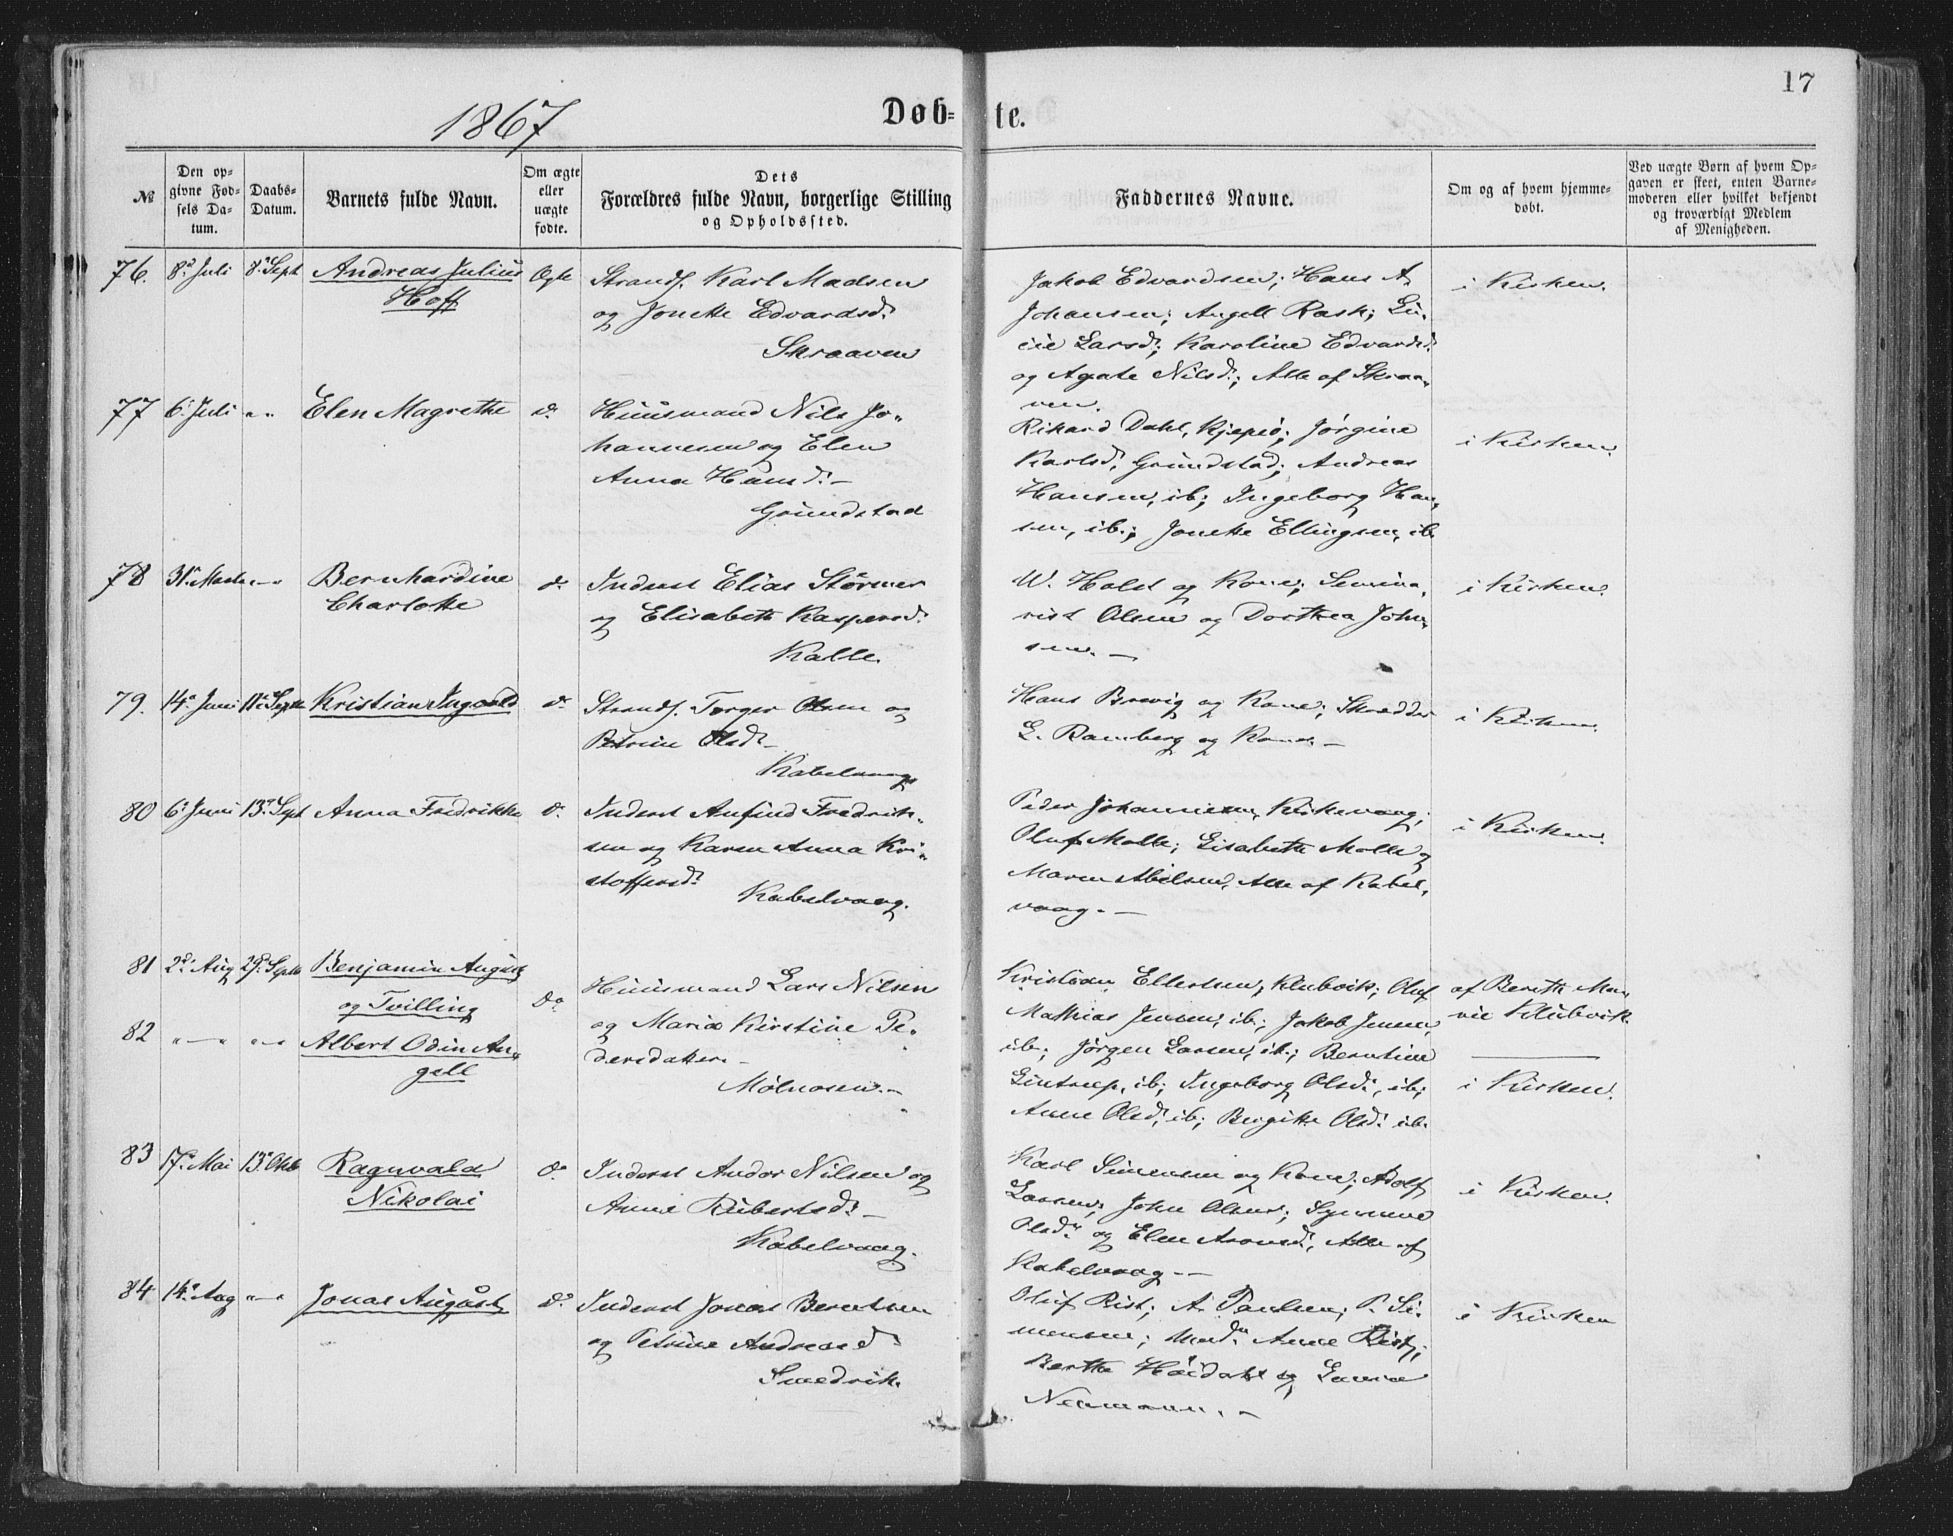 17
1867
Døb- te.
№
Den opgivne Fødsels Datum.
Daabs-Datum.
Barnets fulde Navn.
Om ægte eller uægte fødte.
Dets Forældres fulde Navn, borgerlige Stilling og Opholdssted.
Faddernes Navne.
Om og af hvem hjemmedøbt.
Ved uægte Børn af hvem Opgaven er skeet, enten Barnemoderen eller hvilket bekjendt og troværdigt Medlem af Menigheden.
76. 8d Juli 8de Sept Andreas Julius Ægte
Hoff
Strands. Karl Madsen
og Jonette Edvardsd.
Skraaven
Jakob Edvardsen; Hans A.
Johansen; Angell Rask; Lu-
cie Larsd.; Karoline Edvardsd.
og Agate Nilsd.; Alle af Skraa-
ven.
i Kirken.
77 6. Juli „ „ Elen Magrethe do.
Huusmand Nils Jo-
hannesen og Elen
Anna Hansd. —
Grundstad
Rikard Dahl, Kjepsø; Jørgine
Karlsd. Grundstad; Andreas
Hansen, ib.; Ingeborg Han-
sen, ib.; Jonette Ellingsen, ib.
i Kirken.
78 31. Marts „—„ Bernhardine do.
Charlotte
Inderst Elias Størmer
og Elisabeth Kaspersd.
Kalle.
W. Holst og Kone; Semina-
rist Olsen og Dorthea John-
sen. —
i Kirken.
79. 14. Juni 11. Septb Kristian Ingvald do.
Strands. Torger Olsen og
Petrine Olsd. —
Kabelvaag
Hans Brevig og Kone; Skrædder
L. Ramberg og Kone. —
i Kirken.
80 6. Juni 13. Sept Anna Fredrikke do.
Inderst Anfind Fredrik-
sen og Karen Anna Kri-
stoffersd.
Kabelvaag.
Peder Johannesen, Kirkevaag;
Oluf Malle; Lisabeth Malle og
Maren Abelsen, Alle af Kabel-
vaag. —
i Kirken.
81 2d. Aug 29. Septb Benjamin August
og Tvilling do.
82 „—„ „—„ Albert Odin An-
gell
Huusmand Lars Nilsen
og Maria Kirstine Pe-
dersdatter. —
Mølnosen. —
Kristian Ellertsen, Klubvik; Oluf
Mathias Jensen, ib.; Jakob Jensen,
ib.; Jørgen Larsen, ib.; Berntine
Lintrup, ib.; Ingeborg Olsd., ib.;
Anne Olsd. ib.; Birgitte Olsd. ib.
af Berith Ma-
rie Klubvik.
i Kirken.
83 17. Mai 13. Oktb Ragnvald do.
Nikolai
Inderst Andor Nilsen og
Anne Rubertsd. —
Kabelvaag.
Karl Simensen og Kone; Adolf
Larsen; John Olsen; Synnøve
Olsd. og Elen Aronsd., Alle af
Kabelvaag. —
i Kirken.
84 14. Aug „—„ Jonas August do.
Inderst Jonas Berntsen
og Petrine Andreasd.
Smedvik.
Oluf Rist; A. Paulsen; P. Si-
mensen; Mad. Anne Rist;
Berthe Høidahl og Lavina
Neumann. —
i Kirken